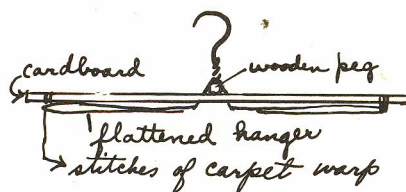 cardboard
wooden peg
flattened hanger
stitches of carpet warp